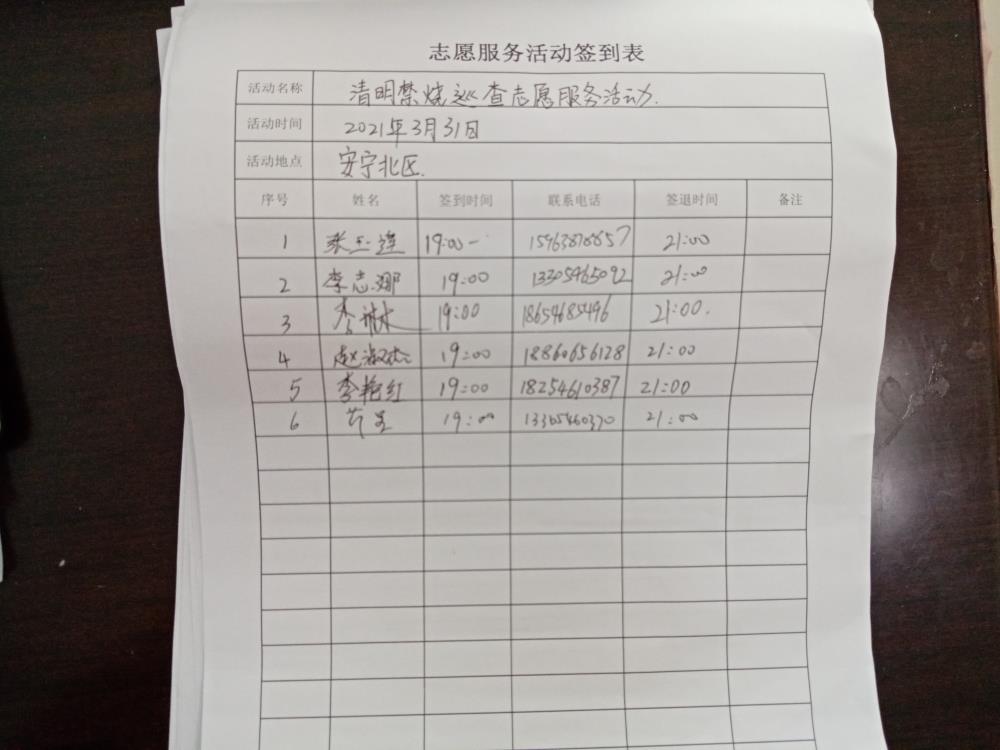 志愿服务活动签到表
活动名称 清明禁烧巡查志愿服务活动.
活动时间 2021年3月31日
活动地点 安宁北区.
序号 姓名 签到时间 联系电话 签退时间 备注
1 张玉莲 19:00- 21:00
2 李志娜 19:00 13305465092 21:00
3 李 19:00 18654685496 21:00.
4 赵淑杰 19:00 18860656128 21:00
5 李艳红 19:00 18254610387 21:00
6 19:00 13305460370 21:00